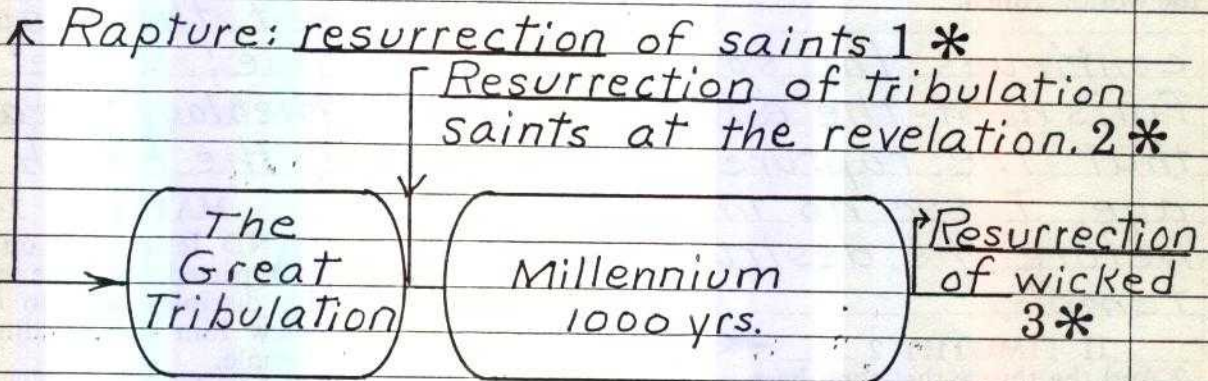 Rapture: resurrection of saints 1 *
Resurrection of tribulation
saints at the revelation. 2 *
The
Great
Tribulation
Millennium
1000 yrs.
Resurrection
of wicked
3 *